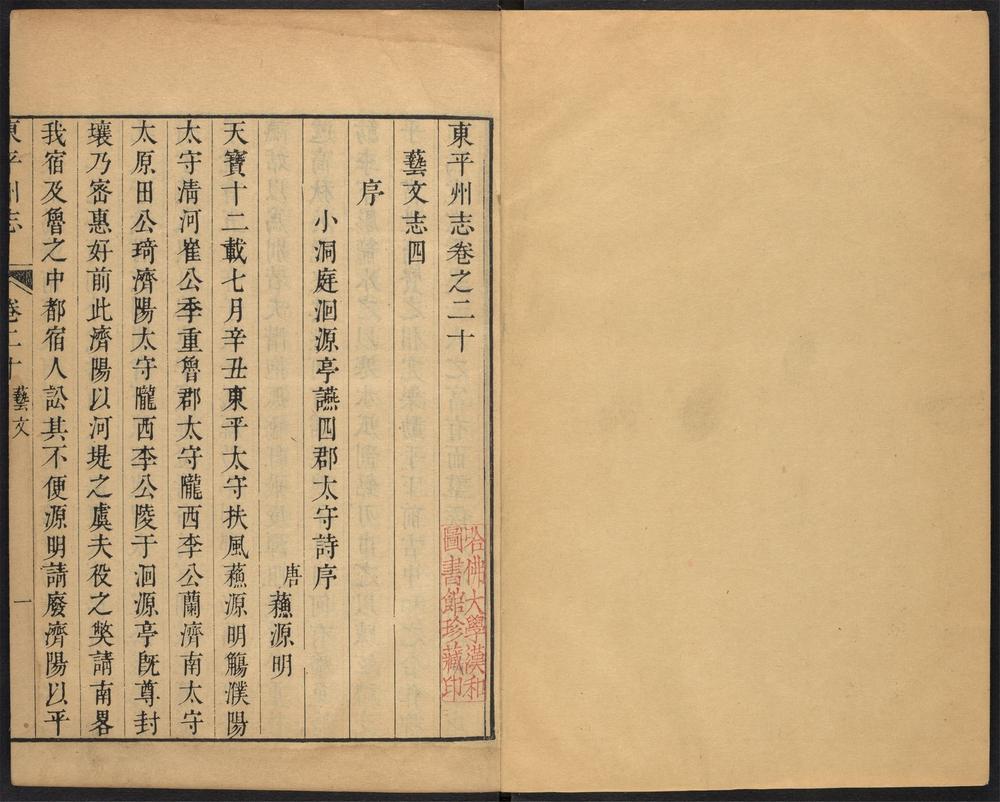 東平州志卷之二十
藝文志四
序
小洞庭洄源亭讌四郡太守詩序
唐 蘓源明
天寶十二載七月辛丑東平太守扶風蘓源明觴濮陽
太守清河崔公季重魯郡太守隴西李公蘭濟南太守
太原田公琦濟陽太守隴西李公陵于洄源亭既尊封
壤乃密惠好前此濟陽以河堤之虞夫役之弊請南畧
我宿及魯之中都宿人訟其不便源明請廢濟陽以平
東平州志 卷二十 藝文 一
塔佛大學漢和
圖書館珍藏印